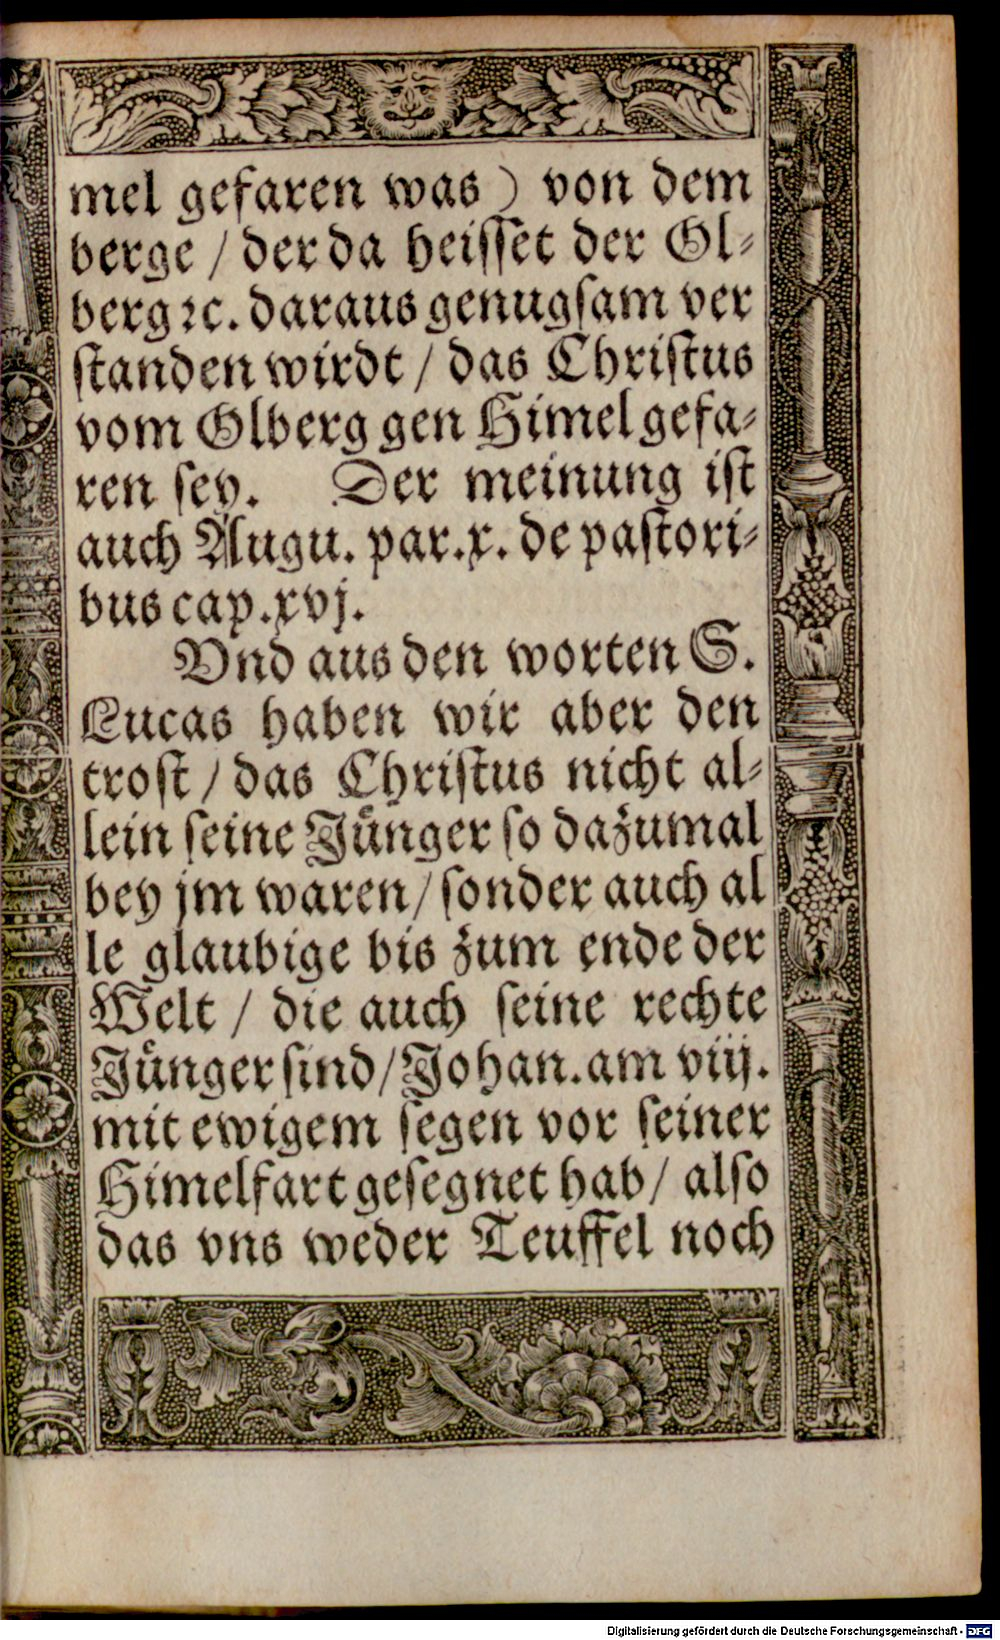 mel gefaren was ) von dem
berge / der da heisset der Ol-
berg ꝛc. daraus genugsam ver
standen wirdt / das Christus
vom Olberg gen Himel gefa-
ren sey. Der meinung ist
auch Augu. par. x. de pastori-
bus cap. xvj.
Vnd aus den worten S.
Lucas haben wir aber den
trost / das Christus nicht al-
lein seine Jünger so dazumal
bey jm waren / sonder auch al
le glaubige bis zum ende der
Welt / die auch seine rechte
Jünger sind / Johan. am viij.
mit ewigem segen vor seiner
Himelfart gesegnet hab / also
das vns weder Teuffel noch
Digitalisierung gefördert durch die Deutsche Forschungsgemeinschaft - DFG